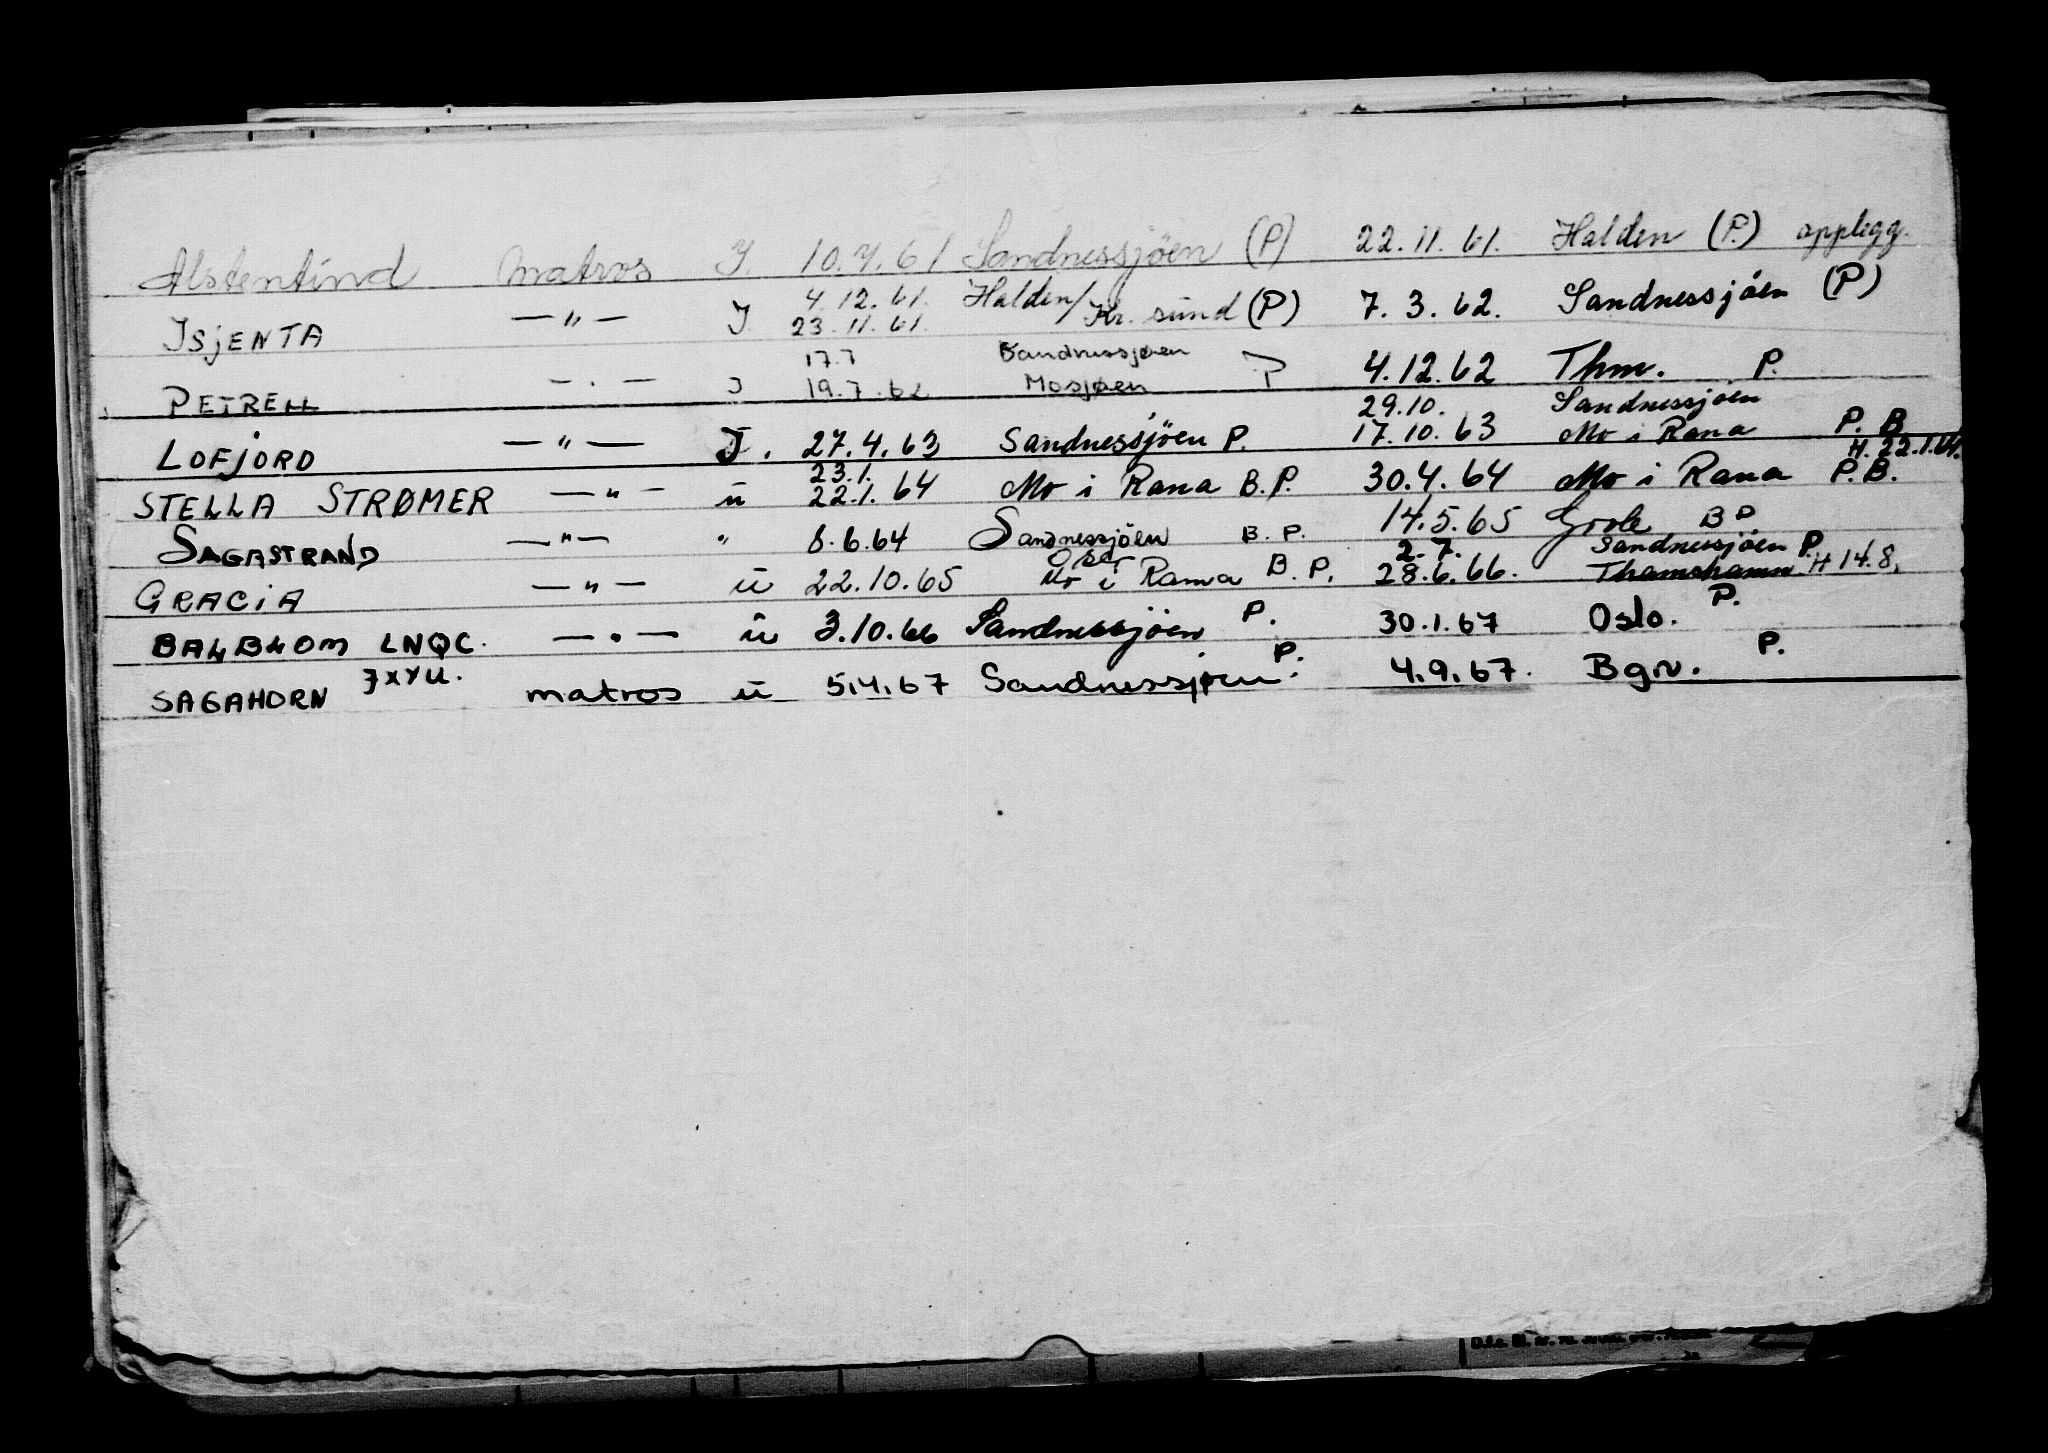 Alstentind matros J. 10.4.61 Sandnessjöen (P) 22.11.61. Halden (P.) opplegg.
4.12.61. Halden/
JSJENTA —"— J 23.11.61. Kr. sund (P) 7.3.62. Sandnessjöen (P)
17.7 Sandnessjøen
PETRELL —.— J 19.7.62 Mosjøen P 4.12.62 Thm. P.
29.10. Sandnessjöen
LOFJORD —"— J. 27.4.63 Sandnessjöen P. 17.10.63 Mo i Rana P.B.
23.1. H. 22.1.64.
STELLA STRØMER —"— ü 22.1.64 Mo i Rana B.P. 30.4.64 Mo i Rana P.B.
SAGASTRAND —"— " 8.6.64 Sandnessjöen B.P. 14.5.65 BP
2.7. Sandnessjöen P.
GRACIA —"— ü 22.10.65 Mo i Rana B.P. 28.6.66. Thamshamn H 14.8.
BALBLOM LNQC. —"— ü 3.10.66 Sandnessjöen P. 30.1.67 Oslo. P.
SAGAHORN JXYU. matros ü 5.4.67 Sandnessjøen P. 4.9.67. Bgn. P.